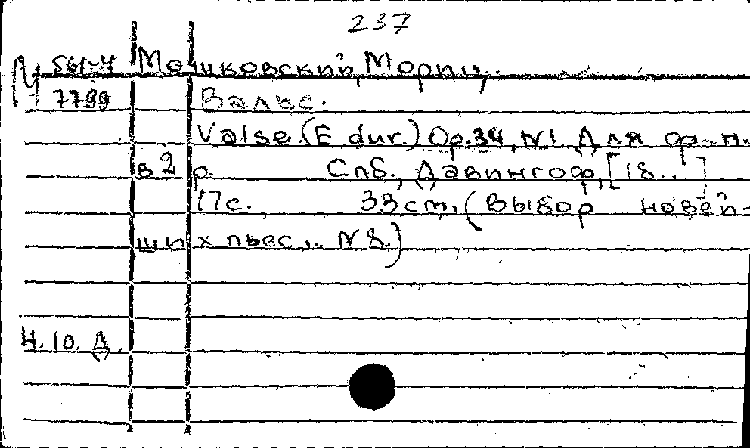 237
М 561-4 Мошковский, Мориц.
7799 Вальс.
Valse (E dur.) Op. 34, N1. Для ф.-п.
в 2 р. Спб., Давингоф, [18..]
17 с. 33 см. (Выбор новей-
ших пьес, .. N 8.)
Ч. 10. Д.